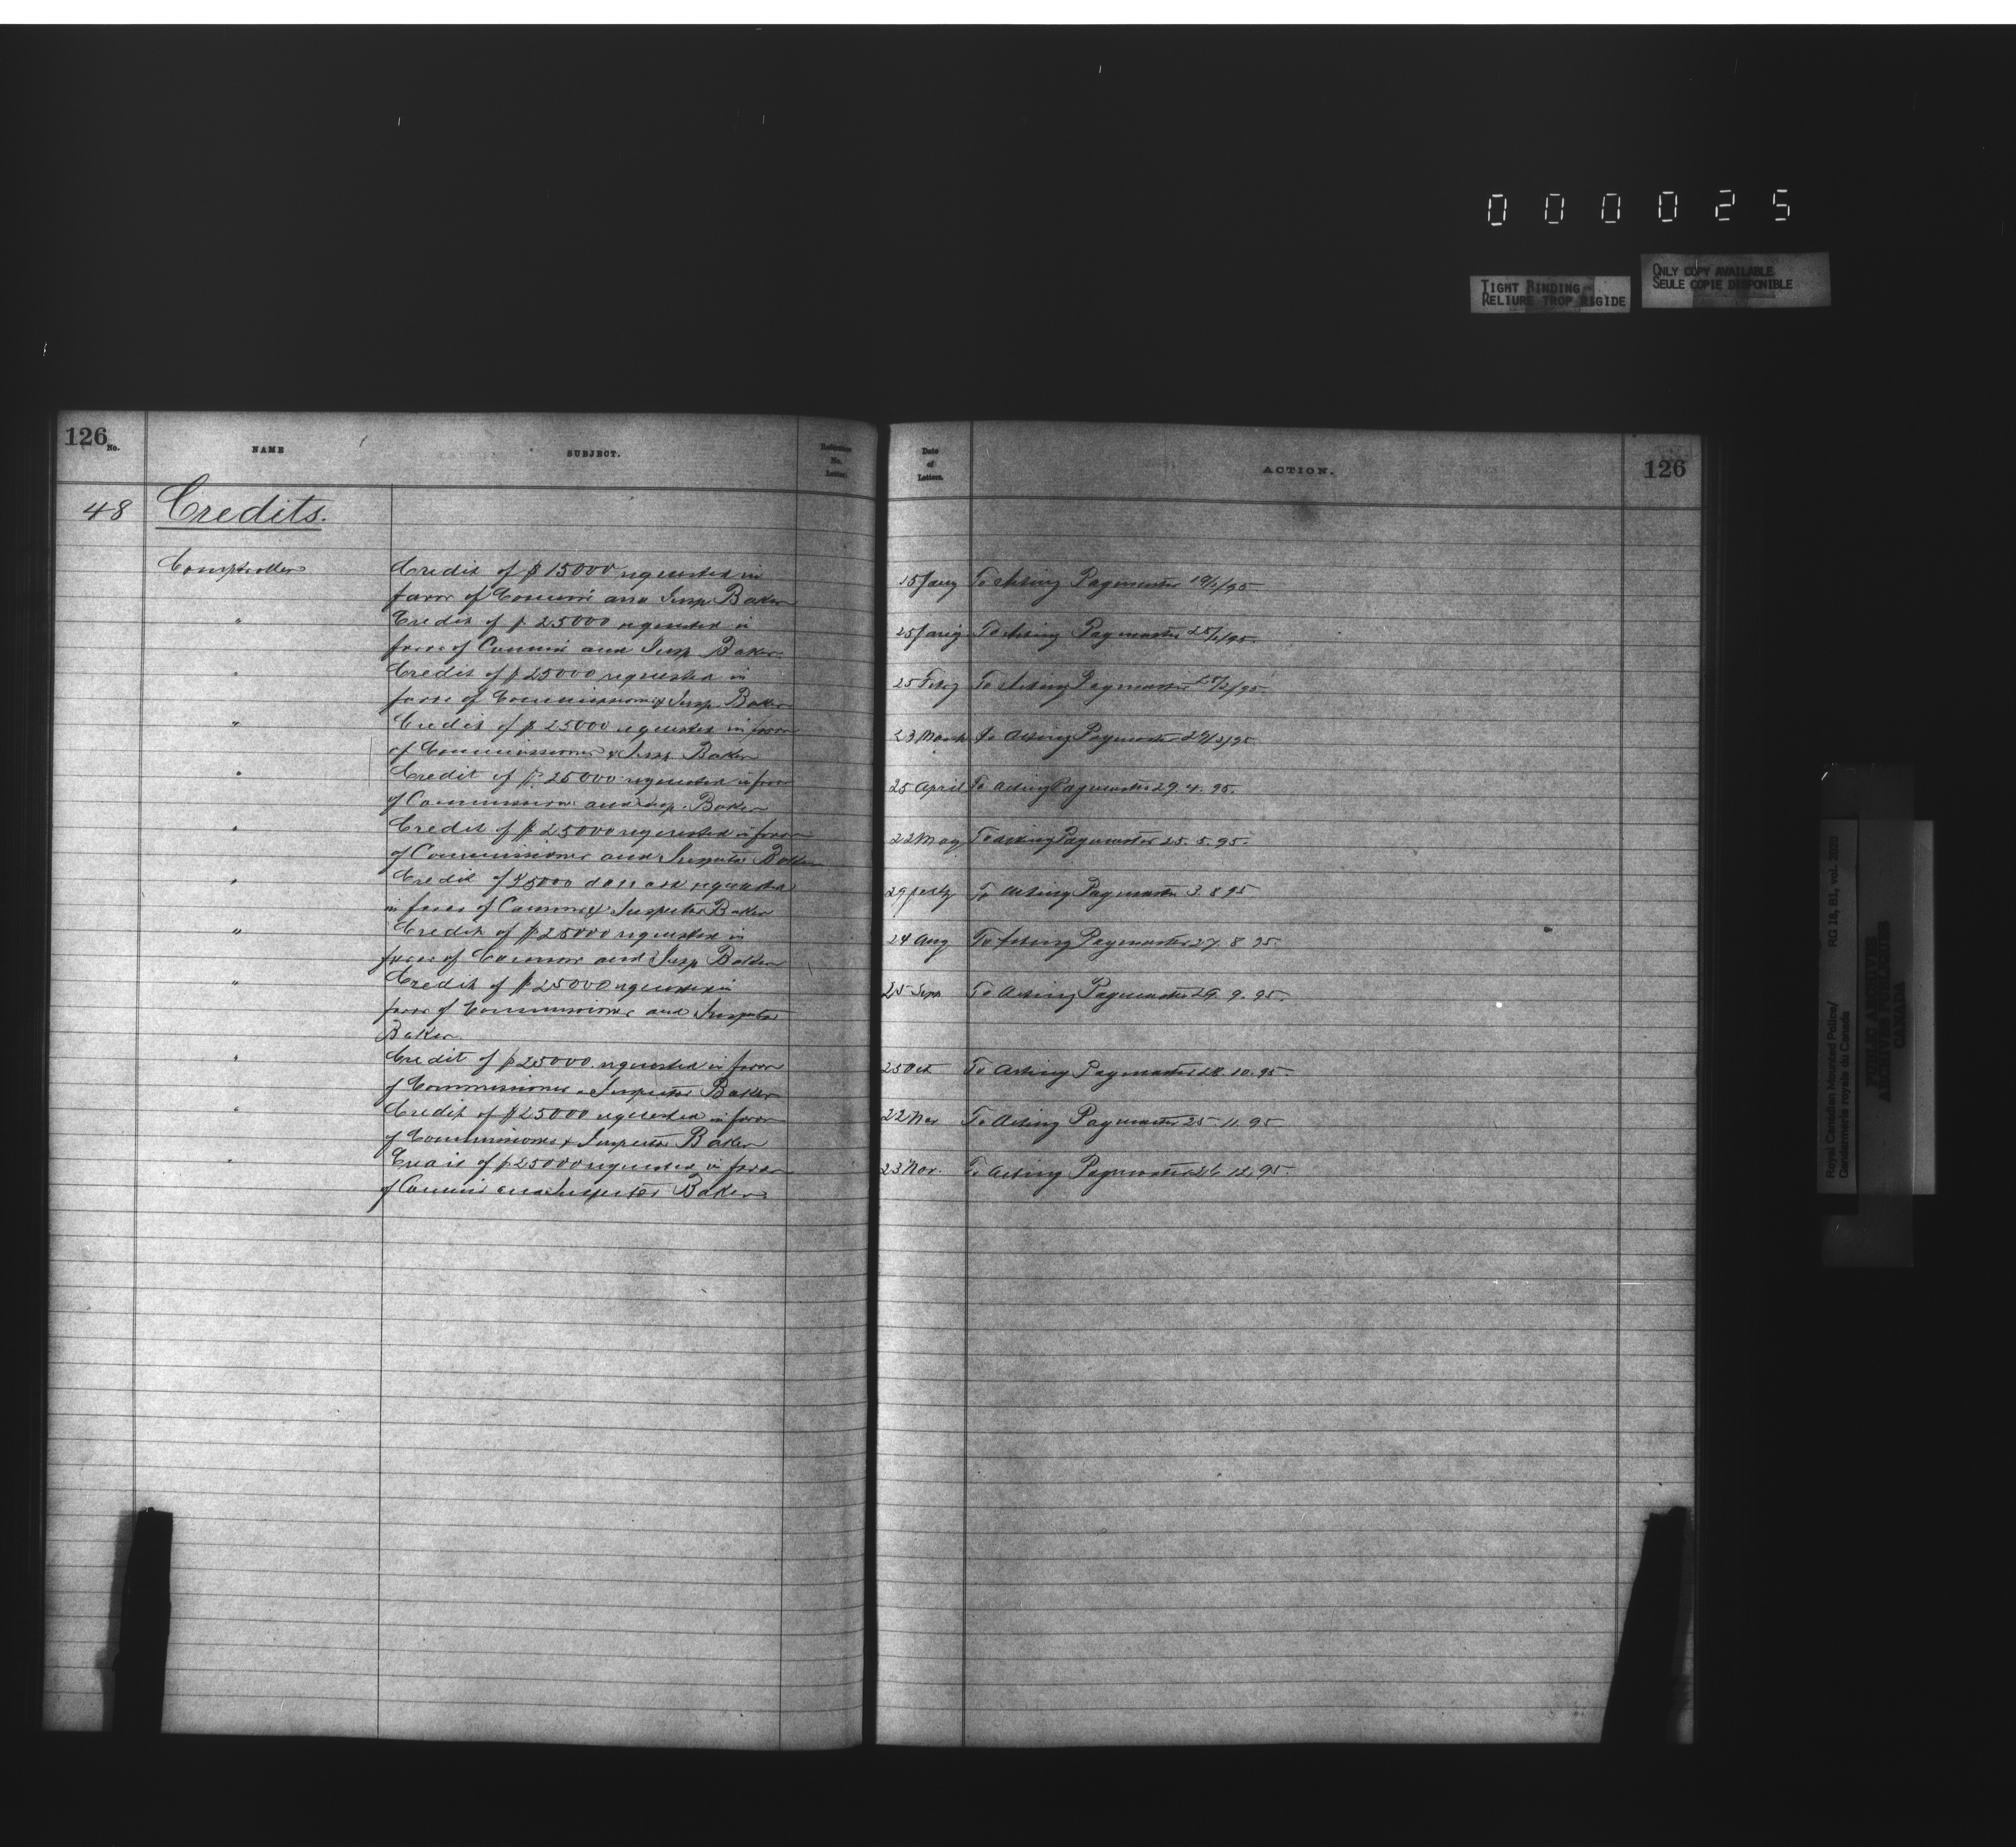 000025
TIGHT BINDING
RELIURE TROP RIGIDE
ONLY COPY AVAILABLE
SEULE COPIE DISPONIBLE
126 No. NAME SUBJECT. Reference No. Letter. Date of Letters. ACTION. 126
48 Credits.
Comptroller Credit of $15000 requested in 15 Jany To Acting Paymaster 19/1/95
favor of Commr and Insp Baker
" Credit of $25000 requested in 25 Jany To Acting Paymaster 28/1/95
favor of Commr and Insp Baker
" Credit of $25000 requested in 25 Feby To Acting Paymaster /2/95
favor of Commissioner & Insp Baker
" Credit of $25000 requested in favor 23 March To Acting Paymaster 29/3/95
of Commissioner & Insp Baker
" Credit of $25000 requested in favor 25 April To Acting Paymaster 29.4.95.
of Commissioner and Insp. Baker
" Credit of $25000 requested in favor 22 May To Acting Paymaster 25.5.95.
of Commissioner and Inspector Baker
" Credit of 25000 requested 29 July To Acting Paymaster 3.8.95
in favor of Commr & Inspector Baker
" Credit of $25000 requested in 24 Aug To Acting Paymaster 27.8.95.
favor of Commr and Insp Baker
" Credit of $25000 requested in 25 Sept To Acting Paymaster 29.9.95.
favor of Commissioner and Inspector
Baker
" Credit of $25000 requested in favor 25 Oct To Acting Paymaster 28.10.95
of Commissioner & Inspector Baker
" Credit of $25000 requested in favor 22 Nov To Acting Paymaster 25 11.95
of Commissioner & Inspector Baker
" Credit of $25000 requested in favor 23 Nov. To Acting Paymaster 26.12.95.
of Commr and Inspector Baker
Royal Canadian Mounted Police/ RG 18, B1, vol. 2020
Gendarmerie royale du Canada
PUBLIC ARCHIVES
ARCHIVES PUBLIQUES
CANADA